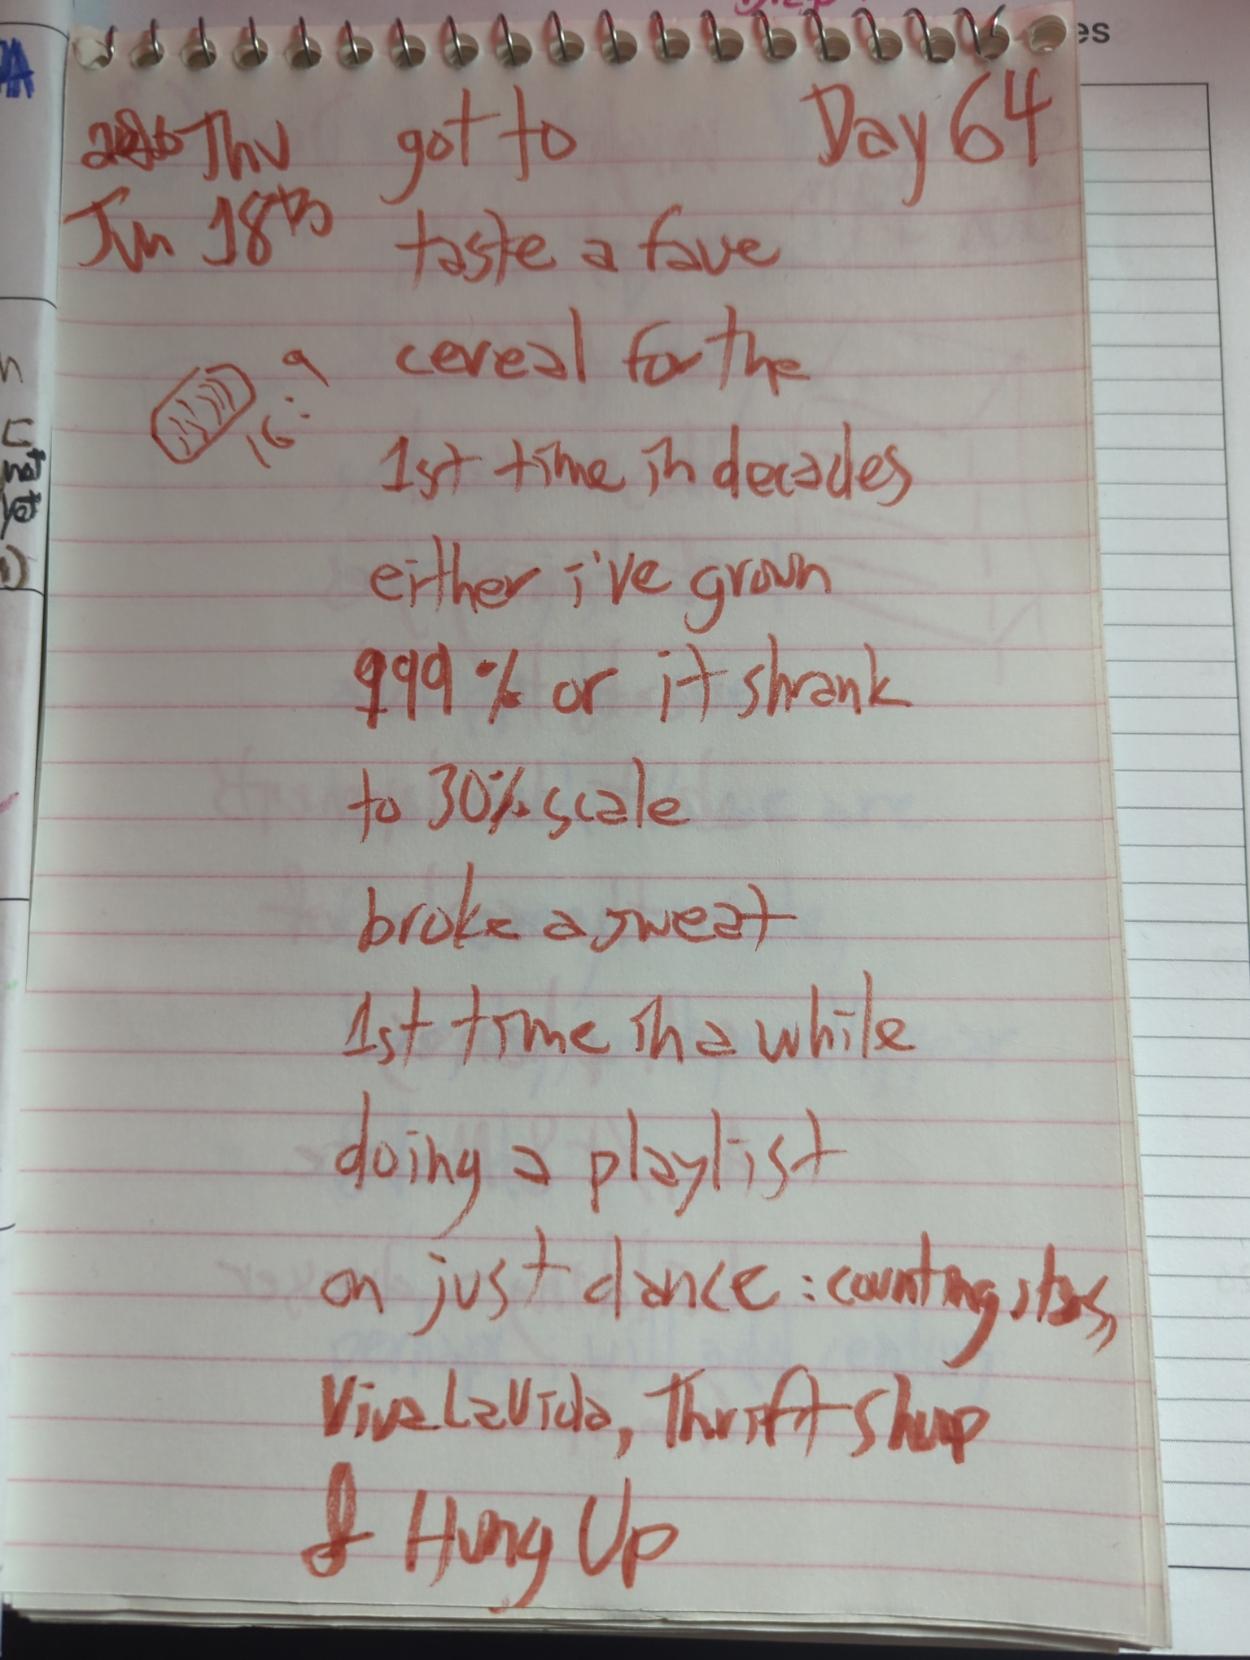 2026 Thu
Jun 18th
Day 64
got to
taste a fave
cereal for the
1st time in decades
either i've grown
999% or it shrank
to 30% scale
16:9
broke a sweat
1st time in a while
doing a playlist
on just dance : counting stars,
Viva La Vida, Thrift Shop
& Hung Up
es
not
yet